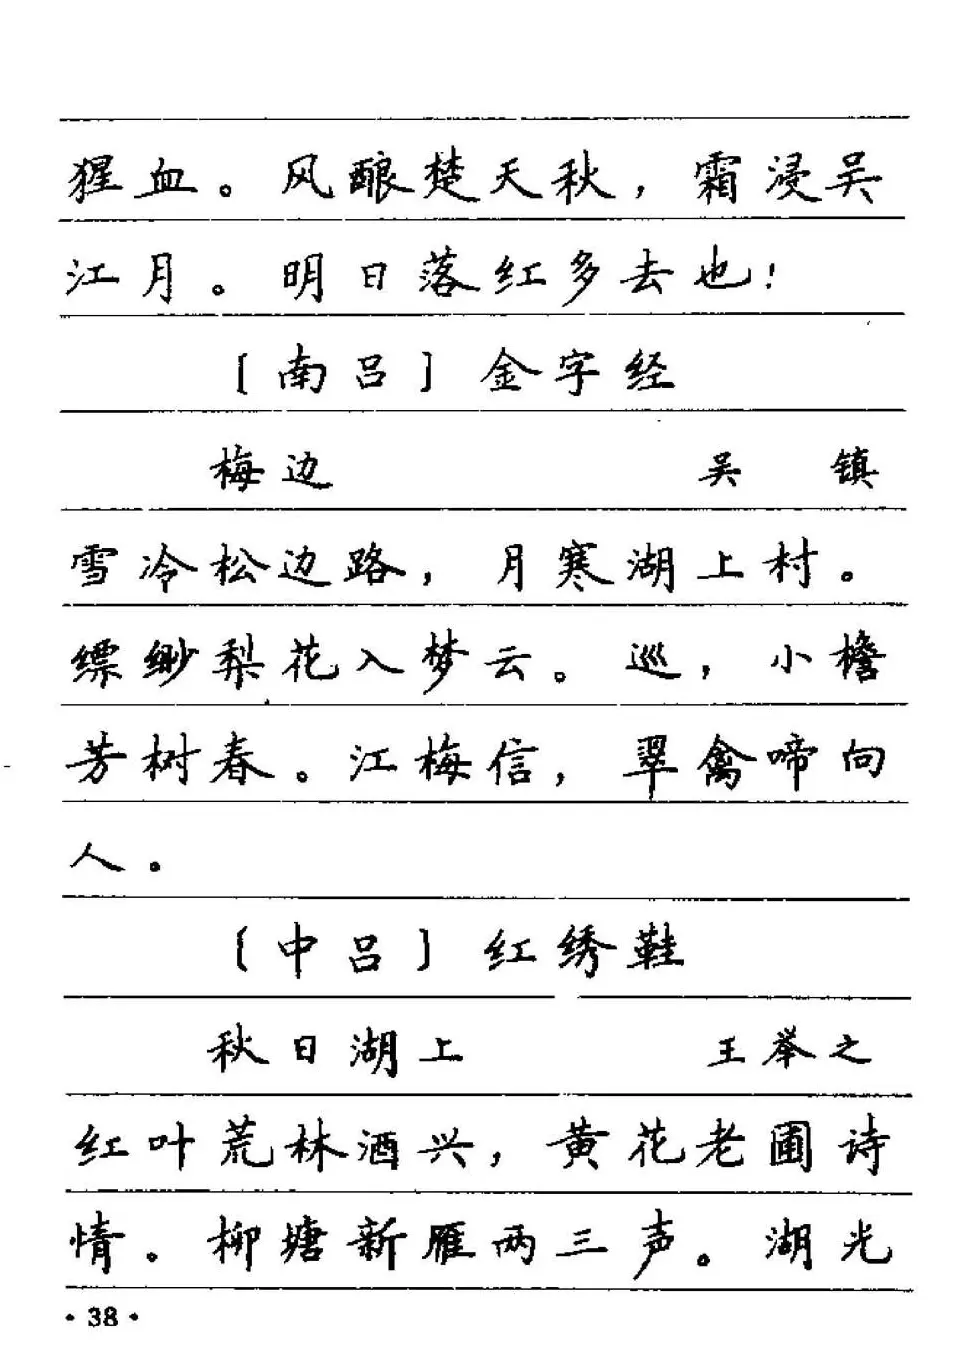 猩血。风酿楚天秋，霜浸吴
江月。明日落红多去也！
〔南吕〕金字经
梅边 吴 镇
雪冷松边路，月寒湖上村。
缥缈梨花入梦云。巡，小檐
芳树春。江梅信，翠禽啼向
人。
〔中吕〕红绣鞋
秋日湖上 王举之
红叶荒林酒兴，黄花老圃诗
情。柳塘新雁两三声。湖光
·38·